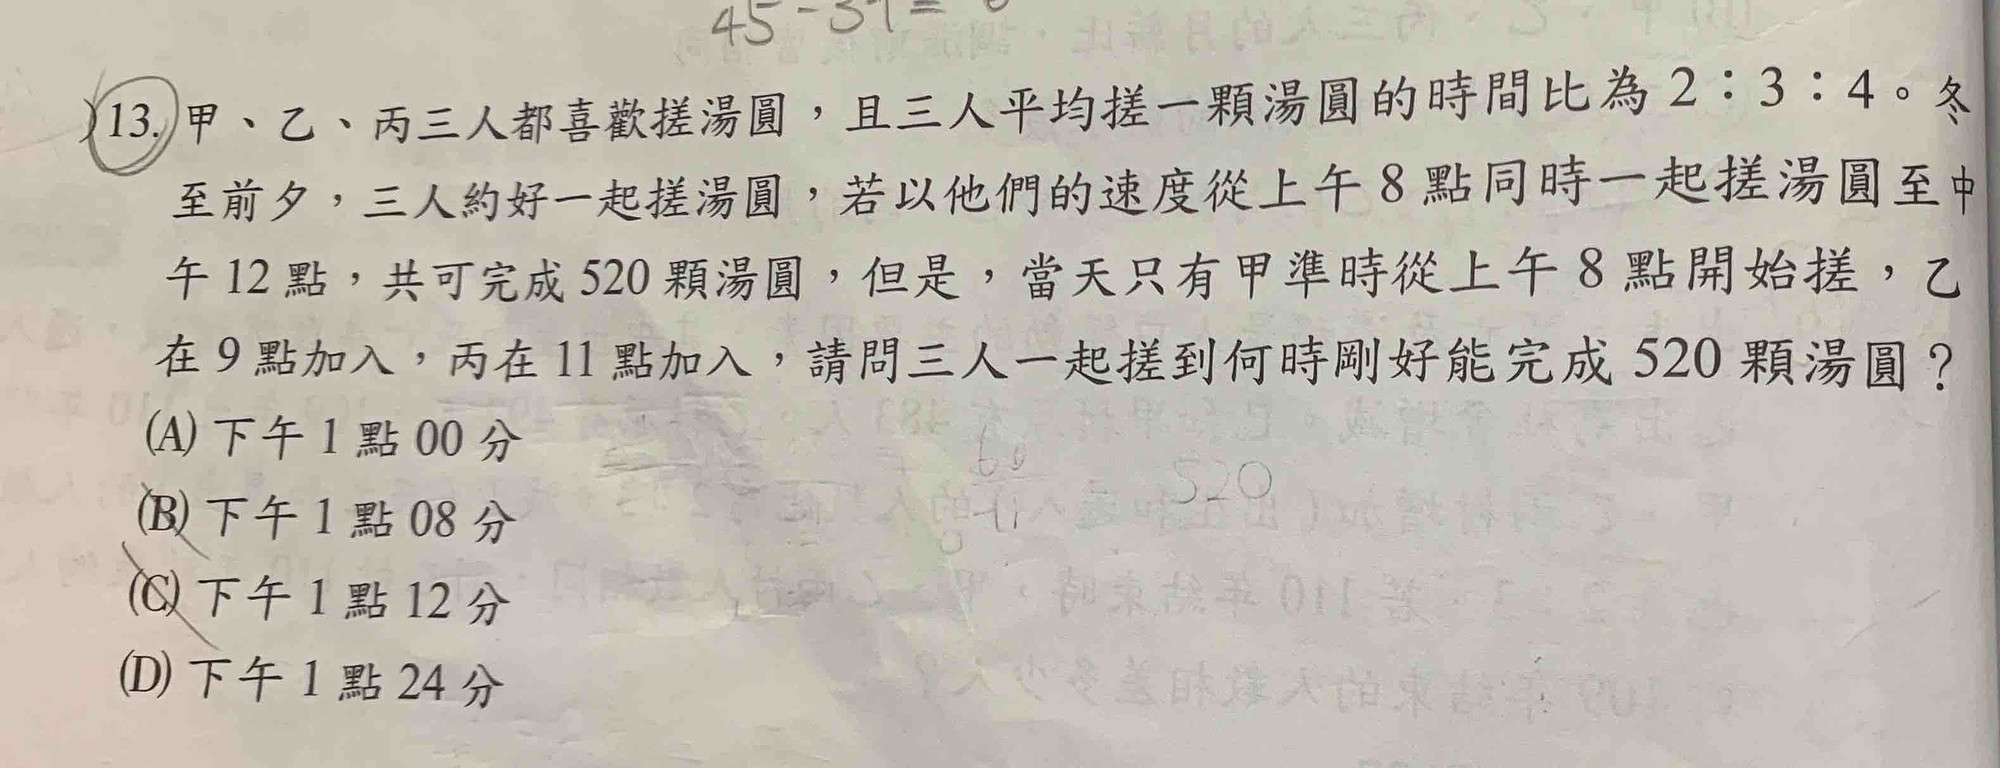 13. 甲、乙、丙三人都喜歡搓湯圓，且三人平均搓一顆湯圓的時間比為 2：3：4。冬
至前夕，三人約好一起搓湯圓，若以他們的速度從上午 8 點同時一起搓湯圓至中
午 12 點，共可完成 520 顆湯圓，但是，當天只有甲準時從上午 8 點開始搓，乙
在 9 點加入，丙在 11 點加入，請問三人一起搓到何時剛好能完成 520 顆湯圓？
(A) 下午 1 點 00 分
520
(B) 下午 1 點 08 分
(C) 下午 1 點 12 分
(D) 下午 1 點 24 分